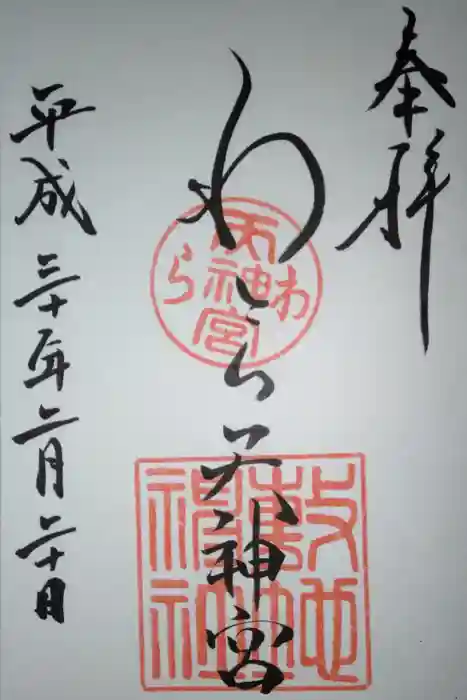 奉拝
わら天神宮
平成三十年二月二十日
わら天神宮
敷地神社